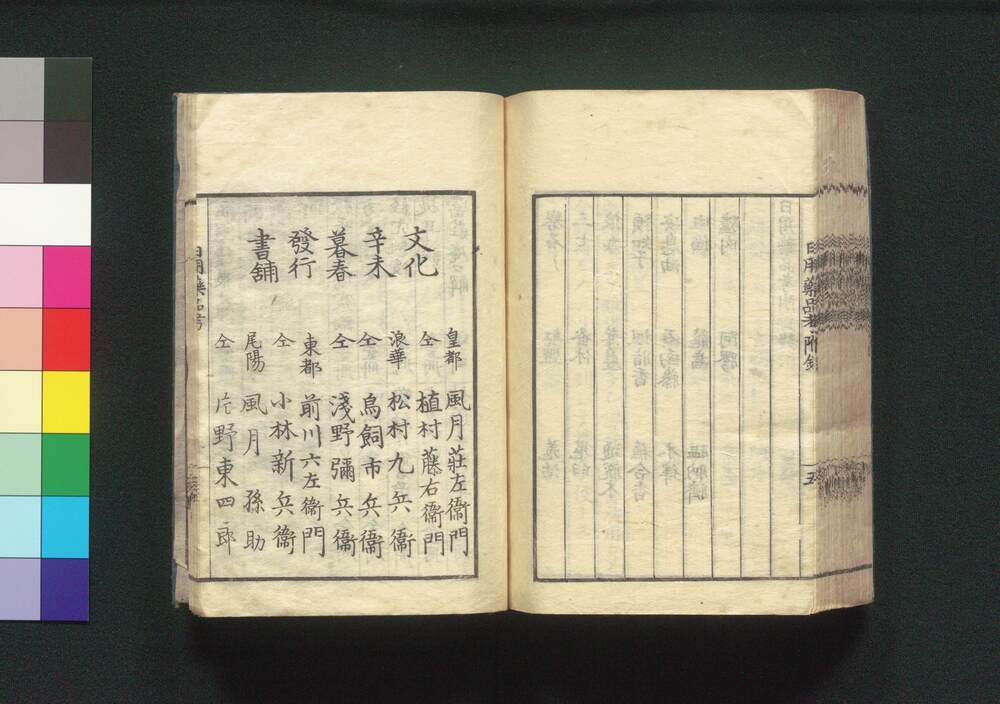 日用藥品考 附錄
五
文化
辛未
暮春
發行
書舗
皇都 風月莊左衞門
仝 植村藤右衞門
浪華 松村九兵衞
仝 鳥飼市兵衞
仝 淺野彌兵衞
東都 前川六左衞門
仝 小林新兵衞
尾陽 風月孫助
仝 片野東四郎
日用藥品考